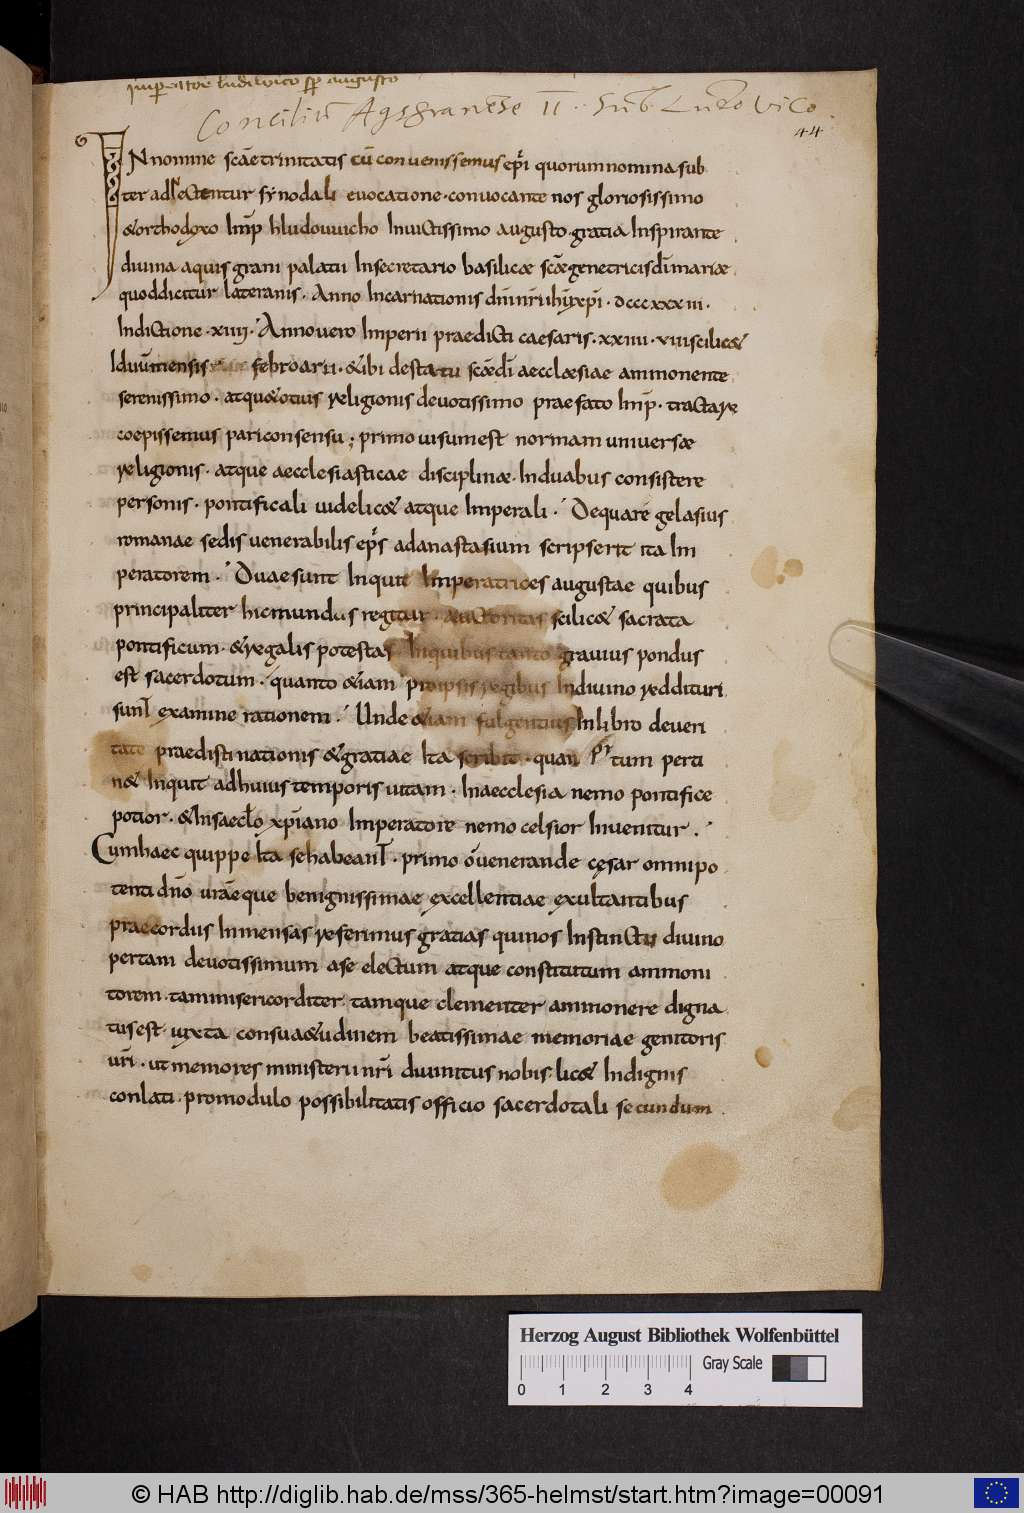 imperatore ludewico sp augusto
Conciliu Agsgranese II. Sub Ludovico.
44
IN nomine scae trinitatis cu convenissemus epi quorum nomina sub
ter adnectentur synodali evocatione. convocante nos gloriosissimo
& orthodoxo Imp hludouuicho Invictissimo augusto. gratia Inspirante
divina aquis grani palatii Insecretario basilicae scae genetricis di mariae
quod dicitur lateranis. Anno Incarnationis dni nri ihu xpi. dcccxxxvi.
Indictione. xiiii. Anno vero Imperii praedicti caesaris. xxiiii. viii scilic&
Iduum mensis februarii. & ibi de statu scae di aecclaesiae ammonente
serenissimo. atqu& otius religionis devotissimo praefato Imp. tractare
coepissemus pari consensu; primo visum est normam universae
religionis. atque aecclesiasticae disciplinae. In duabus consistere
personis. pontificali videlic& atque Imperali. De qua re gelasius
romanae sedis venerabilis eps ad anastasium scripserit ita Im
peratorem. Duae sunt Inquit Imperatrices augustae quibus
principaliter hic mundus regitur. auctoritas scilic& sacrata
pontificum. & regalis potestas. In quibus tanto gravius pondus
est sacerdotum. quanto &iam pro ipsis regibus In divino reddituri
sunt examine rationem. Unde &iam fulgentius In libro de veri
tate praedistinationis & gratiae Ita scribit. quan tum perti
n& Inquit ad huius temporis vitam. In aecclesia nemo pontifice
potior. & In saeclo xpiano Imperatore nemo celsior Invenitur.
Cum haec quippe Ita se habeant. primo o venerande cęsar omnipo
tenti dno vraeque benignissimae excellentiae exultantibus
praecordiis Inmensas referimus gratias qui nos Instinctu divino
per tam devotissimum a se electum atque constitutum ammoni
torem. tam misericorditer tamque clementer ammonere digna
tus est. iuxta consua&udinem beatissimae memoriae genitoris
vri. ut memores ministerii nri divinitus nobis lic& Indignis
conlati. pro modulo possibilitatis officio sacerdotali secundum
Herzog August Bibliothek Wolfenbüttel
0 1 2 3 4
Gray Scale
© HAB http://diglib.hab.de/mss/365-helmst/start.htm?image=00091